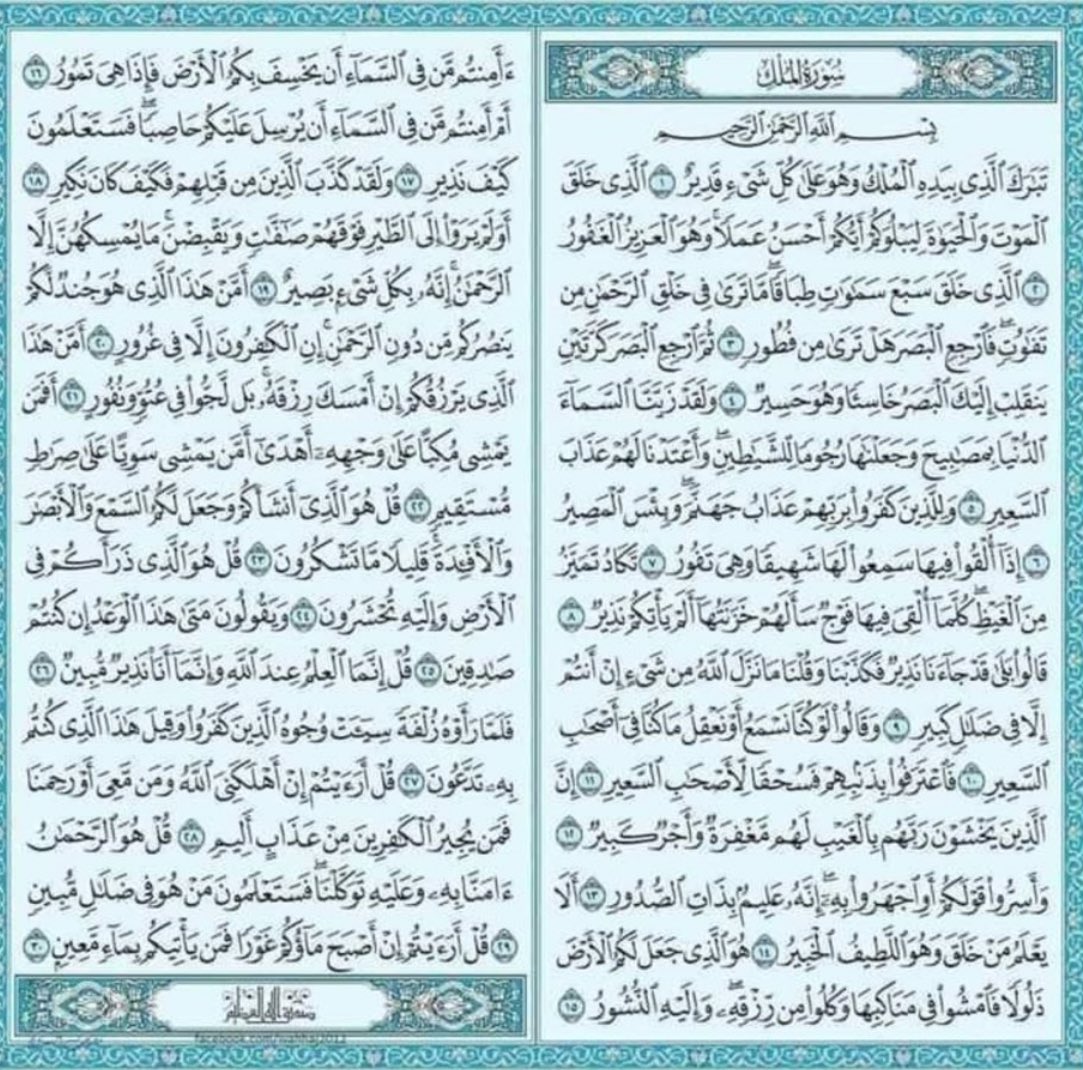 سُورَةُ المُلْكِ
بِسْمِ ٱللَّهِ ٱلرَّحْمَٰنِ ٱلرَّحِيمِ
تَبَٰرَكَ ٱلَّذِي بِيَدِهِ ٱلْمُلْكُ وَهُوَ عَلَىٰ كُلِّ شَىْءٍ قَدِيرٌ ١ ٱلَّذِي خَلَقَ
ٱلْمَوْتَ وَٱلْحَيَوٰةَ لِيَبْلُوَكُمْ أَيُّكُمْ أَحْسَنُ عَمَلًا ۚ وَهُوَ ٱلْعَزِيزُ ٱلْغَفُورُ
٢ ٱلَّذِي خَلَقَ سَبْعَ سَمَٰوَٰتٍ طِبَاقًا ۖ مَّا تَرَىٰ فِي خَلْقِ ٱلرَّحْمَٰنِ مِن
تَفَٰوُتٍ ۖ فَٱرْجِعِ ٱلْبَصَرَ هَلْ تَرَىٰ مِن فُطُورٍ ٣ ثُمَّ ٱرْجِعِ ٱلْبَصَرَ كَرَّتَيْنِ
يَنقَلِبْ إِلَيْكَ ٱلْبَصَرُ خَاسِئًا وَهُوَ حَسِيرٌ ٤ وَلَقَدْ زَيَّنَّا ٱلسَّمَآءَ
ٱلدُّنْيَا بِمَصَٰبِيحَ وَجَعَلْنَٰهَا رُجُومًا لِّلشَّيَٰطِينِ ۖ وَأَعْتَدْنَا لَهُمْ عَذَابَ
ٱلسَّعِيرِ ٥ وَلِلَّذِينَ كَفَرُوا۟ بِرَبِّهِمْ عَذَابُ جَهَنَّمَ ۖ وَبِئْسَ ٱلْمَصِيرُ
٦ إِذَآ أُلْقُوا۟ فِيهَا سَمِعُوا۟ لَهَا شَهِيقًا وَهِىَ تَفُورُ ٧ تَكَادُ تَمَيَّزُ
مِنَ ٱلْغَيْظِ ۖ كُلَّمَآ أُلْقِىَ فِيهَا فَوْجٌ سَأَلَهُمْ خَزَنَتُهَآ أَلَمْ يَأْتِكُمْ نَذِيرٌ ٨
قَالُوا۟ بَلَىٰ قَدْ جَآءَنَا نَذِيرٌ فَكَذَّبْنَا وَقُلْنَا مَا نَزَّلَ ٱللَّهُ مِن شَىْءٍ إِنْ أَنتُمْ
إِلَّا فِي ضَلَٰلٍ كَبِيرٍ ٩ وَقَالُوا۟ لَوْ كُنَّا نَسْمَعُ أَوْ نَعْقِلُ مَا كُنَّا فِىٓ أَصْحَٰبِ
ٱلسَّعِيرِ ١٠ فَٱعْتَرَفُوا۟ بِذَنۢبِهِمْ فَسُحْقًا لِّأَصْحَٰبِ ٱلسَّعِيرِ ١١ إِنَّ
ٱلَّذِينَ يَخْشَوْنَ رَبَّهُم بِٱلْغَيْبِ لَهُم مَّغْفِرَةٌ وَأَجْرٌ كَبِيرٌ ١٢
وَأَسِرُّوا۟ قَوْلَكُمْ أَوِ ٱجْهَرُوا۟ بِهِۦٓ ۖ إِنَّهُۥ عَلِيمٌۢ بِذَاتِ ٱلصُّدُورِ ١٣ أَلَا
يَعْلَمُ مَنْ خَلَقَ وَهُوَ ٱللَّطِيفُ ٱلْخَبِيرُ ١٤ هُوَ ٱلَّذِي جَعَلَ لَكُمُ ٱلْأَرْضَ
ذَلُولًا فَٱمْشُوا۟ فِي مَنَاكِبِهَا وَكُلُوا۟ مِن رِّزْقِهِۦ ۖ وَإِلَيْهِ ٱلنُّشُورُ ١٥
ءَأَمِنتُم مَّن فِي ٱلسَّمَآءِ أَن يَخْسِفَ بِكُمُ ٱلْأَرْضَ فَإِذَا هِىَ تَمُورُ ١٦
أَمْ أَمِنتُم مَّن فِي ٱلسَّمَآءِ أَن يُرْسِلَ عَلَيْكُمْ حَاصِبًا ۖ فَسَتَعْلَمُونَ
كَيْفَ نَذِيرِ ١٧ وَلَقَدْ كَذَّبَ ٱلَّذِينَ مِن قَبْلِهِمْ فَكَيْفَ كَانَ نَكِيرِ ١٨
أَوَلَمْ يَرَوْا۟ إِلَى ٱلطَّيْرِ فَوْقَهُمْ صَٰٓفَّٰتٍ وَيَقْبِضْنَ ۚ مَا يُمْسِكُهُنَّ إِلَّا
ٱلرَّحْمَٰنُ ۚ إِنَّهُۥ بِكُلِّ شَىْءٍۭ بَصِيرٌ ١٩ أَمَّنْ هَٰذَا ٱلَّذِي هُوَ جُندٌ لَّكُمْ
يَنصُرُكُم مِّن دُونِ ٱلرَّحْمَٰنِ ۚ إِنِ ٱلْكَٰفِرُونَ إِلَّا فِي غُرُورٍ ٢٠ أَمَّنْ هَٰذَا
ٱلَّذِي يَرْزُقُكُمْ إِنْ أَمْسَكَ رِزْقَهُۥ ۚ بَل لَّجُّوا۟ فِي عُتُوٍّ وَنُفُورٍ ٢١ أَفَمَن
يَمْشِي مُكِبًّا عَلَىٰ وَجْهِهِۦٓ أَهْدَىٰٓ أَمَّن يَمْشِي سَوِيًّا عَلَىٰ صِرَٰطٍ
مُّسْتَقِيمٍ ٢٢ قُلْ هُوَ ٱلَّذِىٓ أَنشَأَكُمْ وَجَعَلَ لَكُمُ ٱلسَّمْعَ وَٱلْأَبْصَٰرَ
وَٱلْأَفْـِٔدَةَ ۖ قَلِيلًا مَّا تَشْكُرُونَ ٢٣ قُلْ هُوَ ٱلَّذِي ذَرَأَكُمْ فِي
ٱلْأَرْضِ وَإِلَيْهِ تُحْشَرُونَ ٢٤ وَيَقُولُونَ مَتَىٰ هَٰذَا ٱلْوَعْدُ إِن كُنتُمْ
صَٰدِقِينَ ٢٥ قُلْ إِنَّمَا ٱلْعِلْمُ عِندَ ٱللَّهِ وَإِنَّمَآ أَنَا۠ نَذِيرٌ مُّبِينٌ ٢٦
فَلَمَّا رَأَوْهُ زُلْفَةً سِيٓـَٔتْ وُجُوهُ ٱلَّذِينَ كَفَرُوا۟ وَقِيلَ هَٰذَا ٱلَّذِي كُنتُم
بِهِۦ تَدَّعُونَ ٢٧ قُلْ أَرَءَيْتُمْ إِنْ أَهْلَكَنِىَ ٱللَّهُ وَمَن مَّعِىَ أَوْ رَحِمَنَا
فَمَن يُجِيرُ ٱلْكَٰفِرِينَ مِنْ عَذَابٍ أَلِيمٍ ٢٨ قُلْ هُوَ ٱلرَّحْمَٰنُ
ءَامَنَّا بِهِۦ وَعَلَيْهِ تَوَكَّلْنَا ۖ فَسَتَعْلَمُونَ مَنْ هُوَ فِي ضَلَٰلٍ مُّبِينٍ
٢٩ قُلْ أَرَءَيْتُمْ إِنْ أَصْبَحَ مَآؤُكُمْ غَوْرًا فَمَن يَأْتِيكُم بِمَآءٍ مَّعِينٍۭ ٣٠